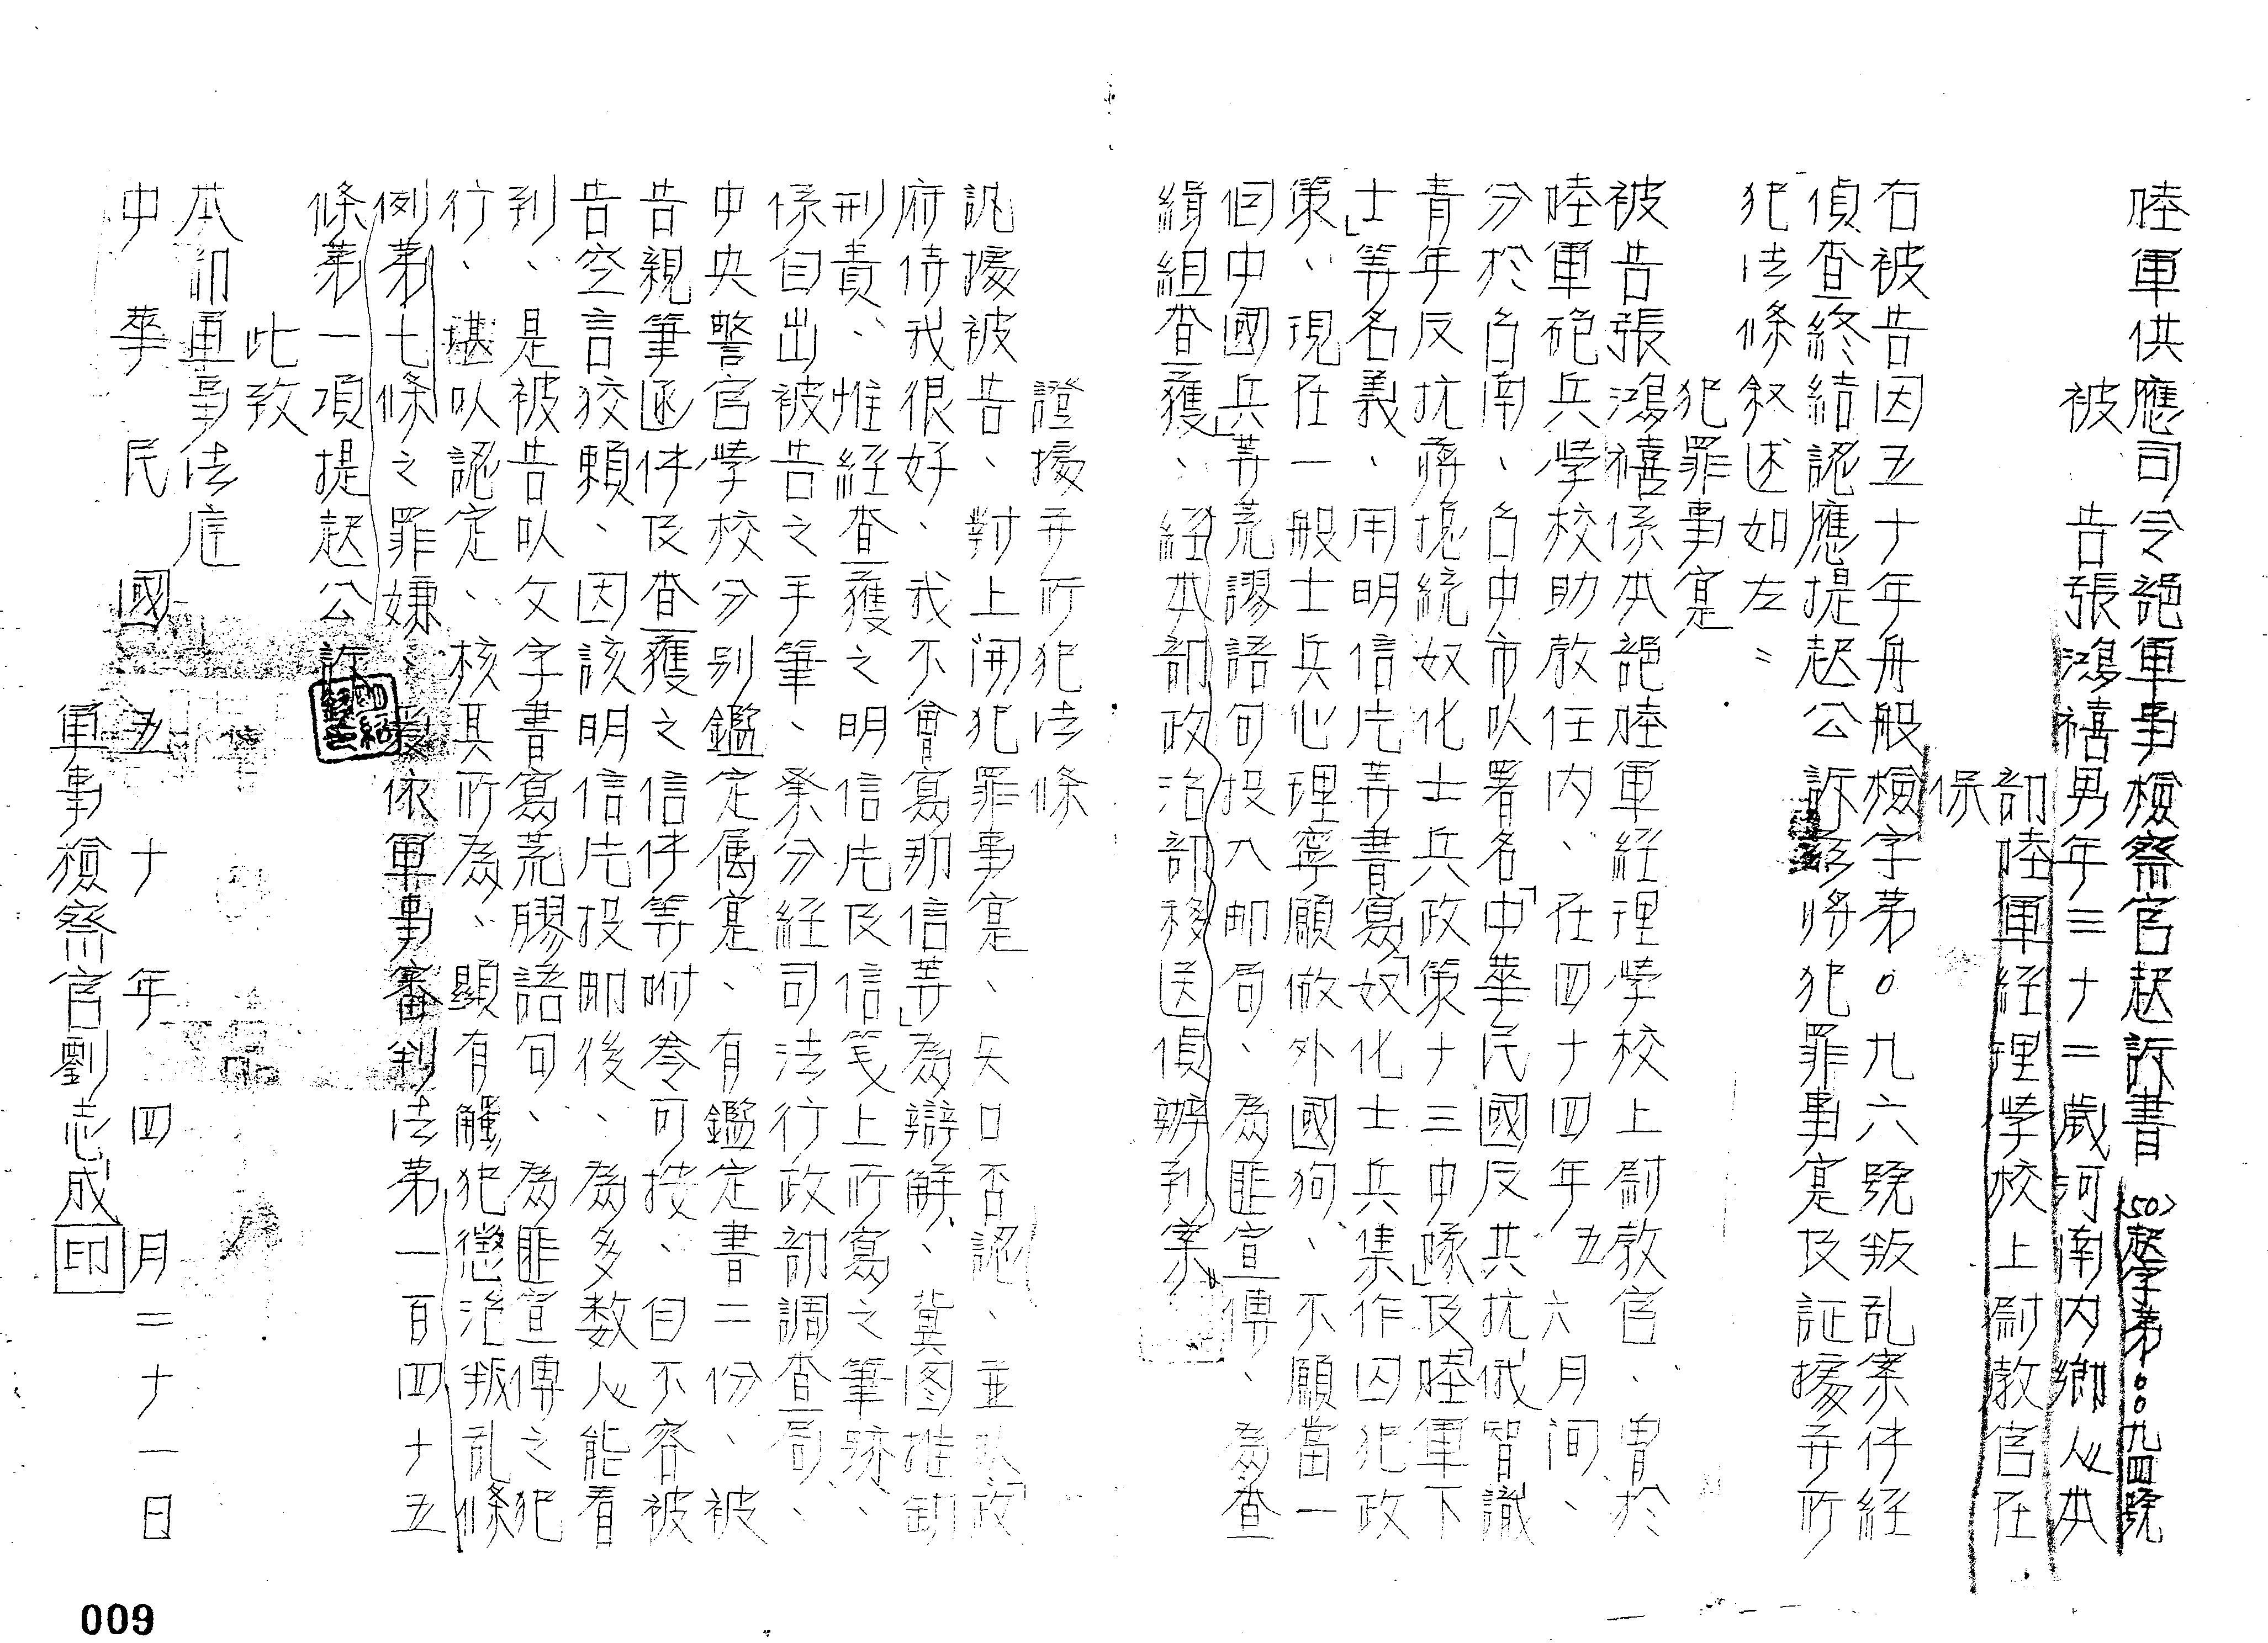 陸軍供應司令部軍事檢察官起訴書(50)起字第〇〇九四號
被告張鴻禧男年三十二歲河南內鄉人本
部陸軍經理學校上尉教官在
保
右被告因五十年舟般檢字第〇九六號叛乱案件經
偵查終結認應提起公訴茲將犯罪事實及証據并所
犯法條叙述如左：
犯罪事實
被告張鴻禧係本部陸軍經理學校上尉教官、曾於
陸軍砲兵學校助教任內、在四十四年五六月间、
分於台南、台中市以署名「中華民國反共抗俄智識
青年反抗蔣總統奴化士兵政策十三中隊」及「陸軍下
士」等名義、用明信片等書寫「奴化士兵集作囚犯政
策、現在一般士兵心理寧願做外國狗、不願當一
個中國兵」等荒謬語句投入邮局、為匪宣傳、為查
緝組查獲、經本部政治部移送偵辦到案。
證據并所犯法條
訊據被告、對上開犯罪事實、矢口否認、並以「政
府待我很好、我不會寫那信等」為辯解、冀图推卸
刑責、惟經查獲之明信片及信箋上所寫之筆跡、
係自出被告之手筆、案分經司法行政部調查局、
中央警官學校分别鑑定属實、有鑑定書二份、被
告親筆函件及查獲之信件等附卷可按、自不容被
告空言狡賴、因該明信片投邮後、為多数人能看
到、是被告以文字書寫荒膠語句、為匪宣傳之犯
行、堪以認定、核其所為、顯有觸犯懲治叛乱條
例第七條之罪嫌、爰依軍事審判法第一百四十五
條第一項提起公訴
此致
本部軍事法庭
中華民國五十年四月二十一日
軍事檢察官劉志成印
009